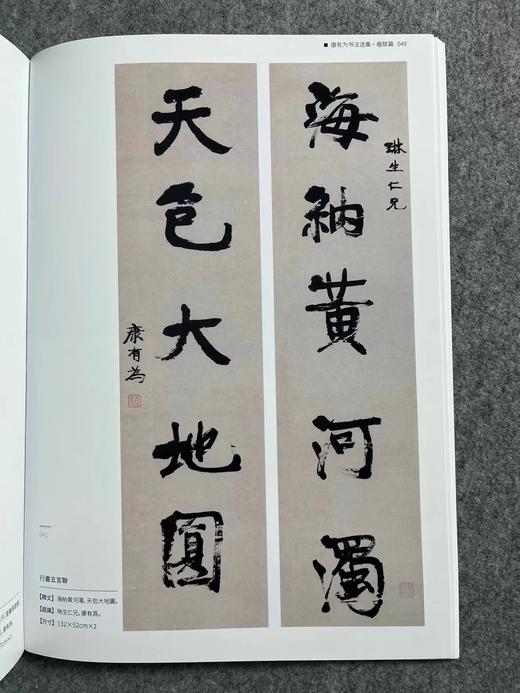 ■ 康有为书法选集·楹联篇 049
海納黃河濁
琳生仁兄
天包大地圓
康有為
041
行書五言聯
【釋文】海納黃河濁，天包大地圓。
【題識】琳生仁兄，康有爲。
【尺寸】132×52cm×2